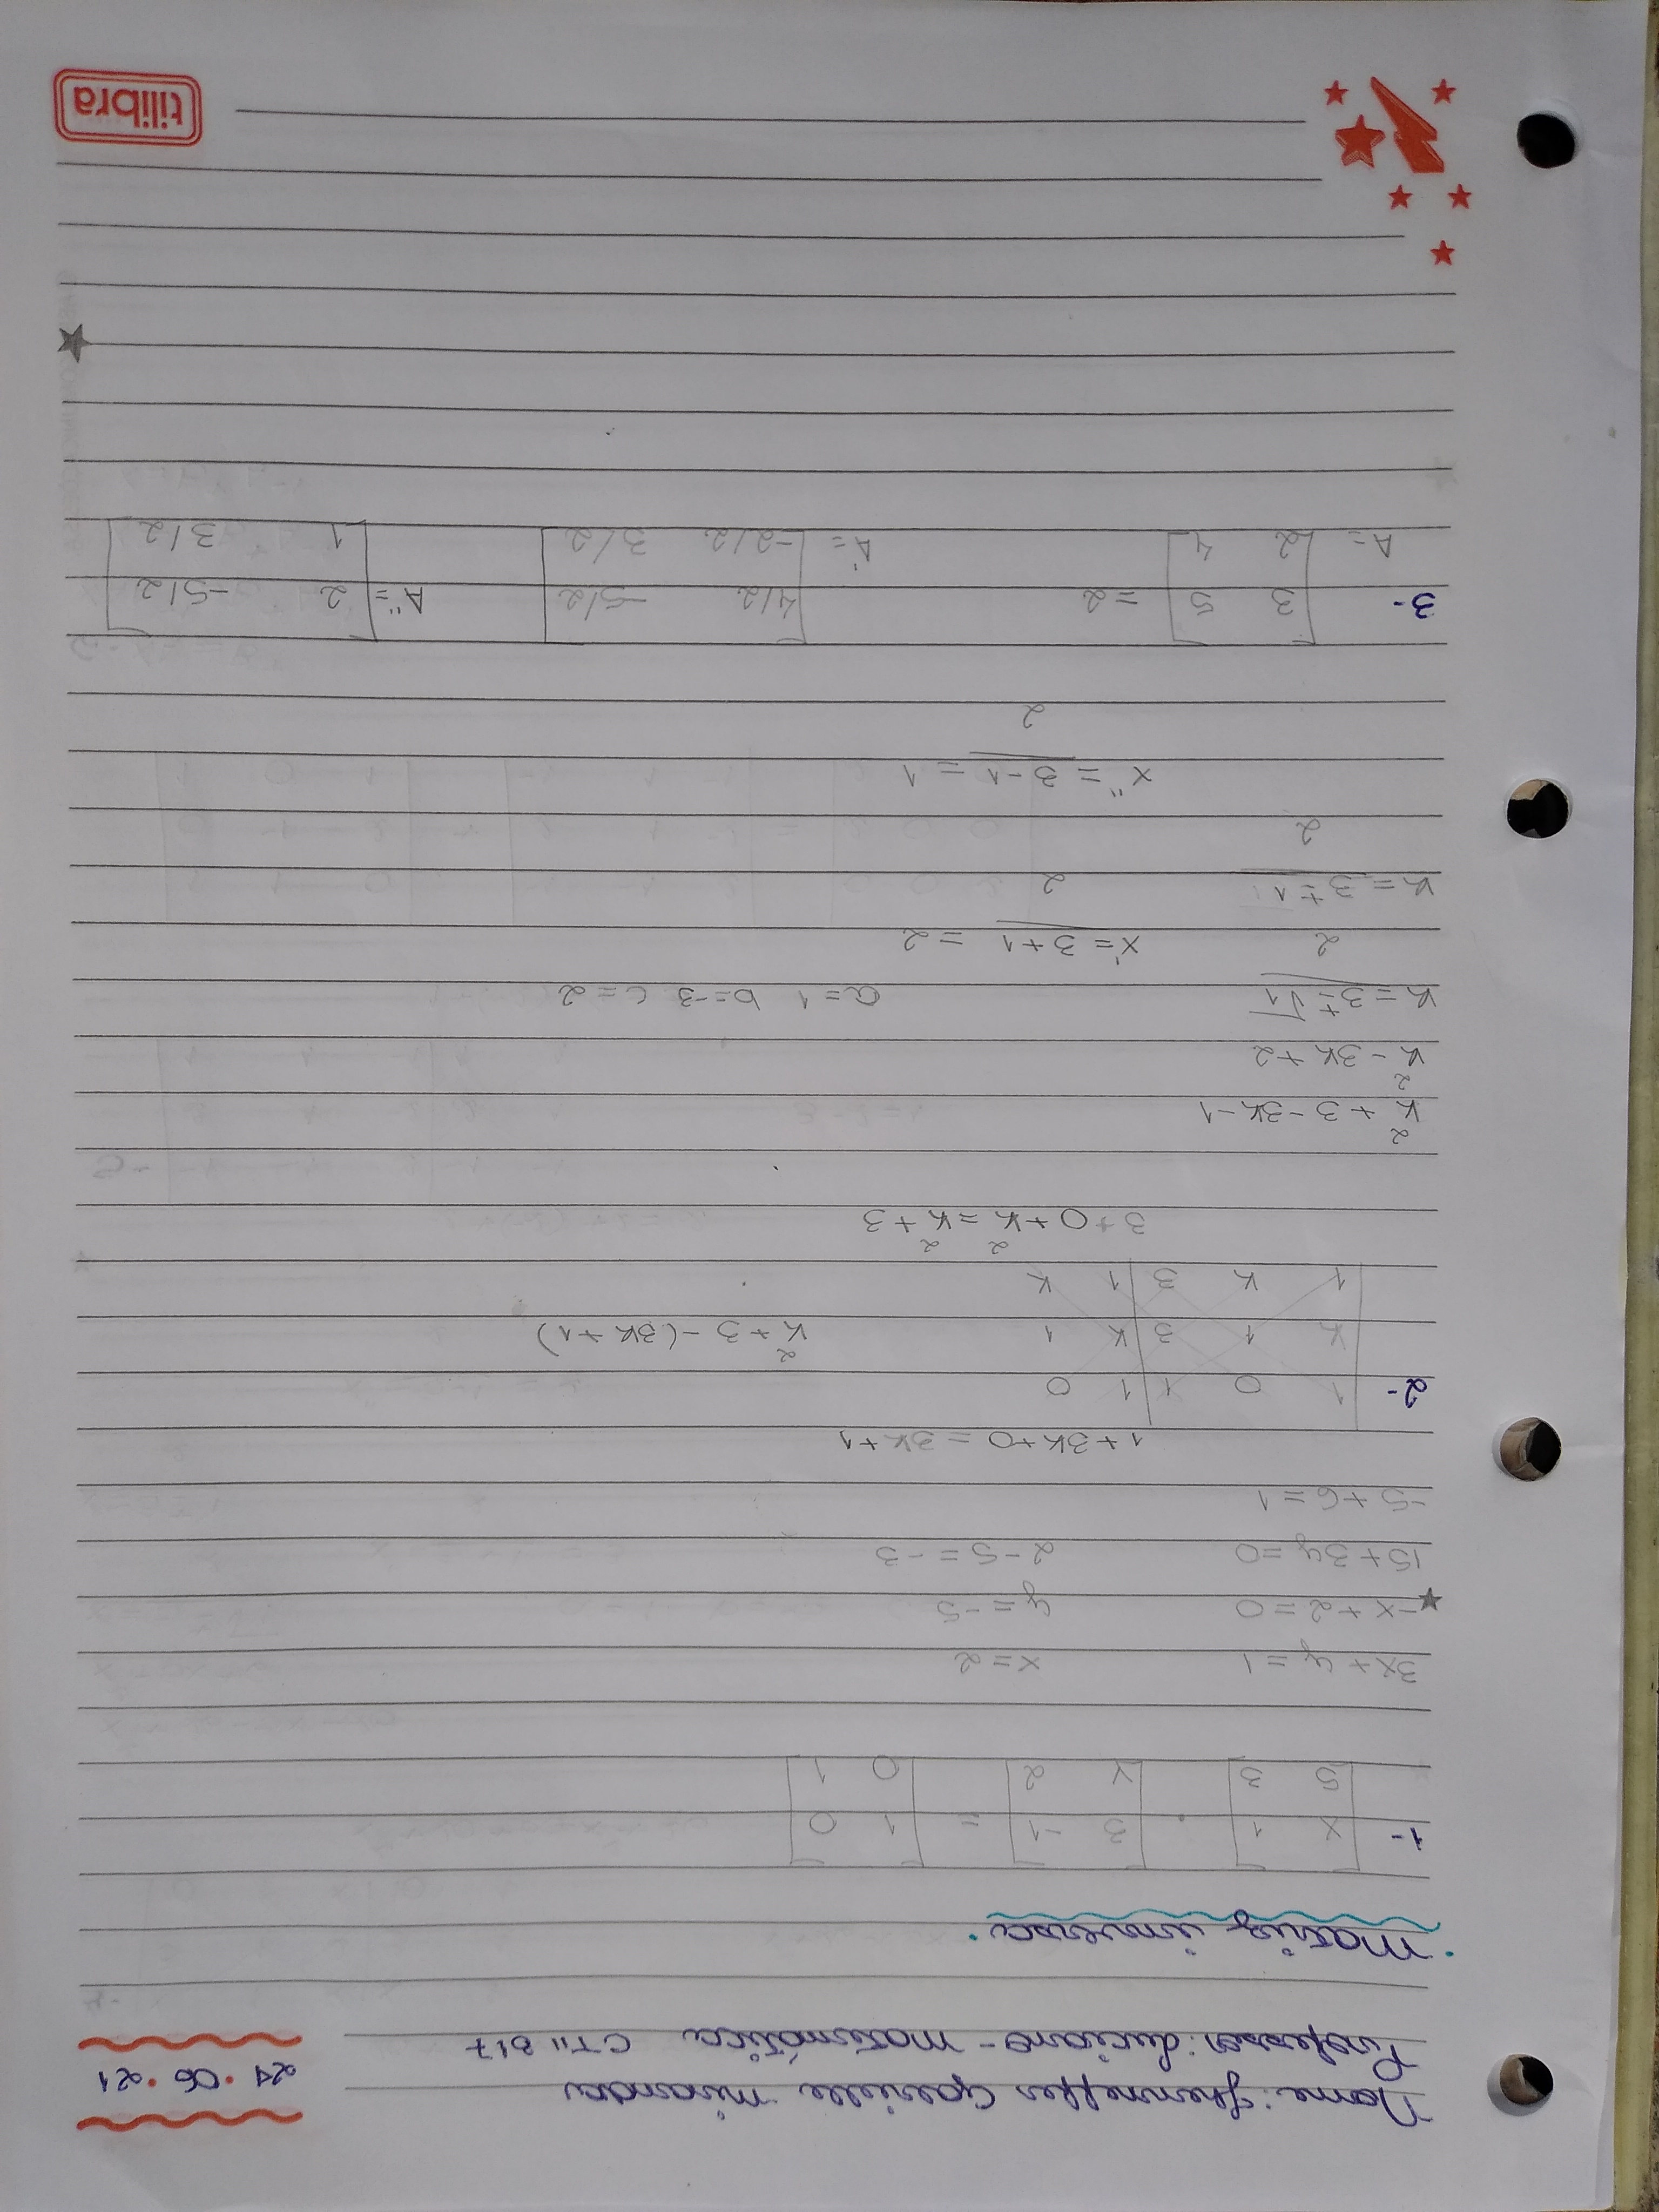 Nome: Jhenneffer Gabrielle Miranda
24 • 06 • 21
Professor: Luciano - Matemática CTII 317
• Matriz inversa •
1- X 1 . 3 -1 = 1 0
5 3 Y 2 0 1
3x + y = 1 x = 2
-x + 2 = 0 y = -5
15 + 3y = 0 2 - 5 = -3
-5 + 6 = 1
1 + 3K + 0 = 3K + 1
2- 1 0 1 | 1 0
K 1 3 | K 1 K² + 3 - (3K + 1)
1 K 3 | 1 K
3 + 0 + K² = K² + 3
K² + 3 - 3K - 1
K² - 3K + 2
K = 3 ± √1 a = 1 b = -3 c = 2
2 x' = 3 + 1 = 2
K = 3 ± 1 2
2
x'' = 3 - 1 = 1
2
3- 3 5 = 2 4/2 -5/2 A'' = 2 -5/2
A = 2 4 A' = -2/2 3/2 1 3/2
tilibra